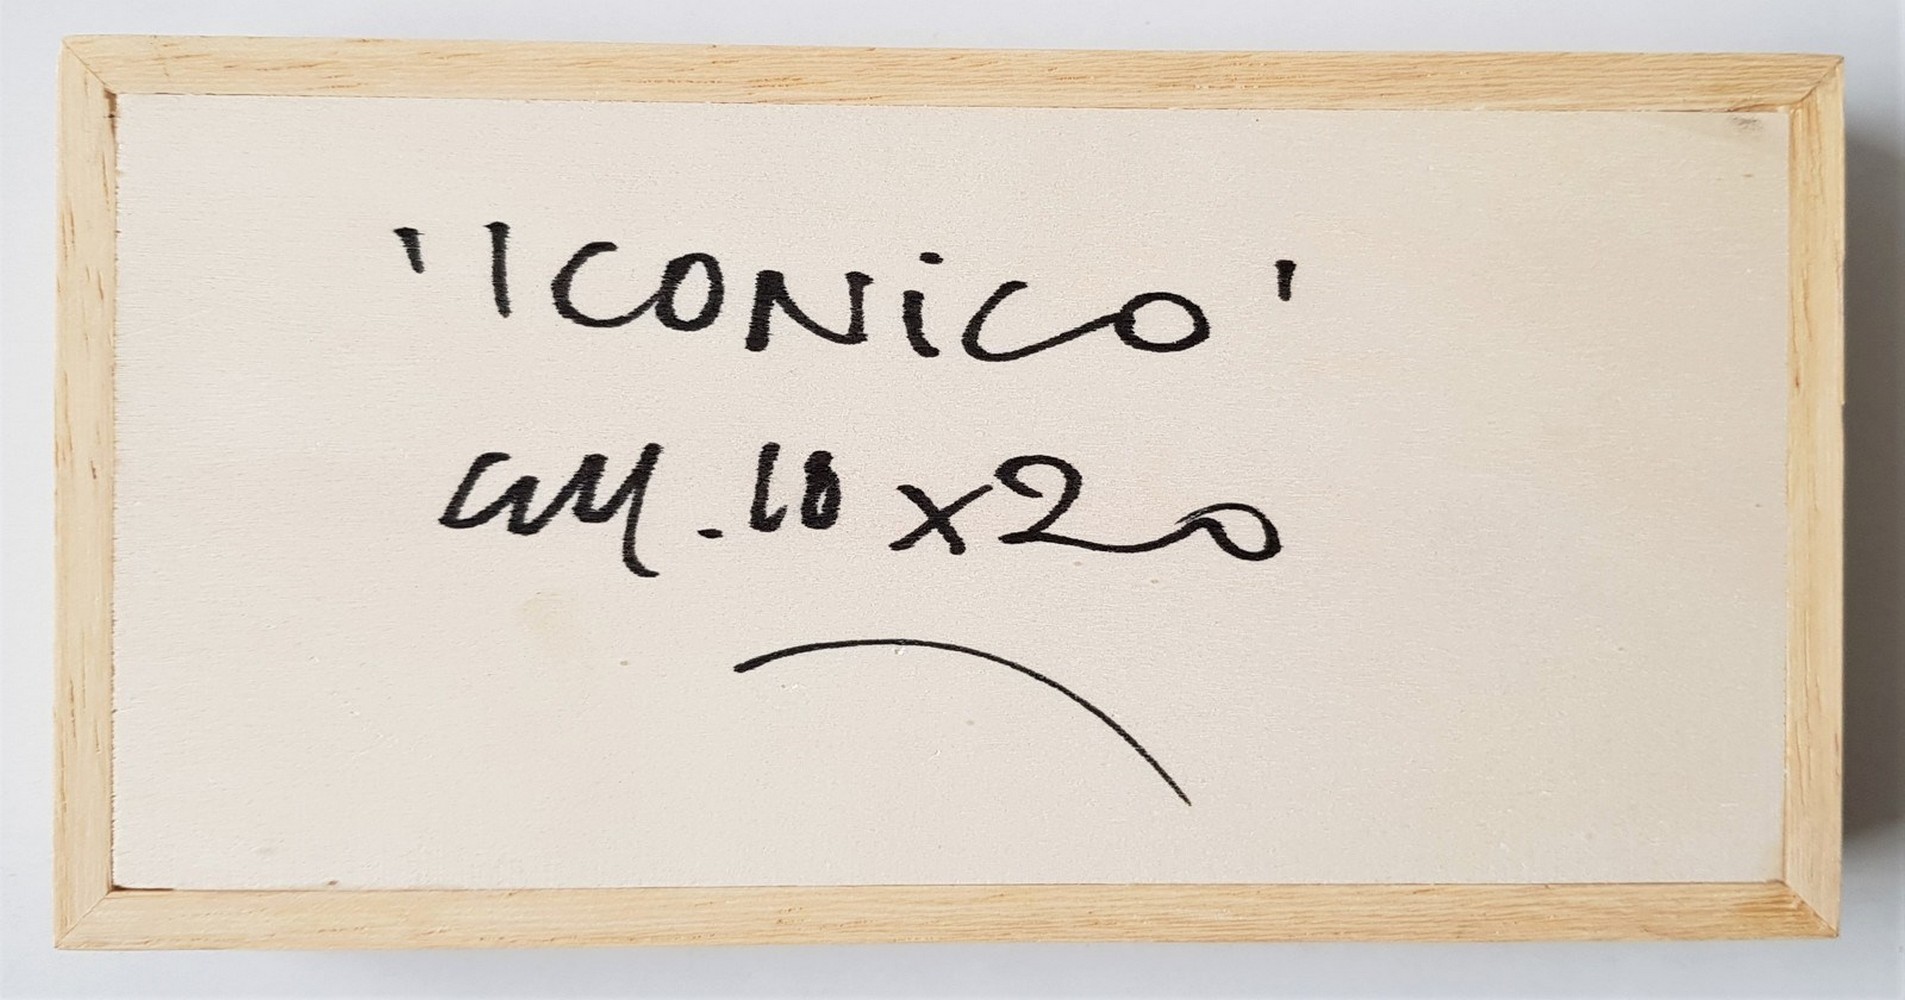 'ICONiCO'
cm. 10x20